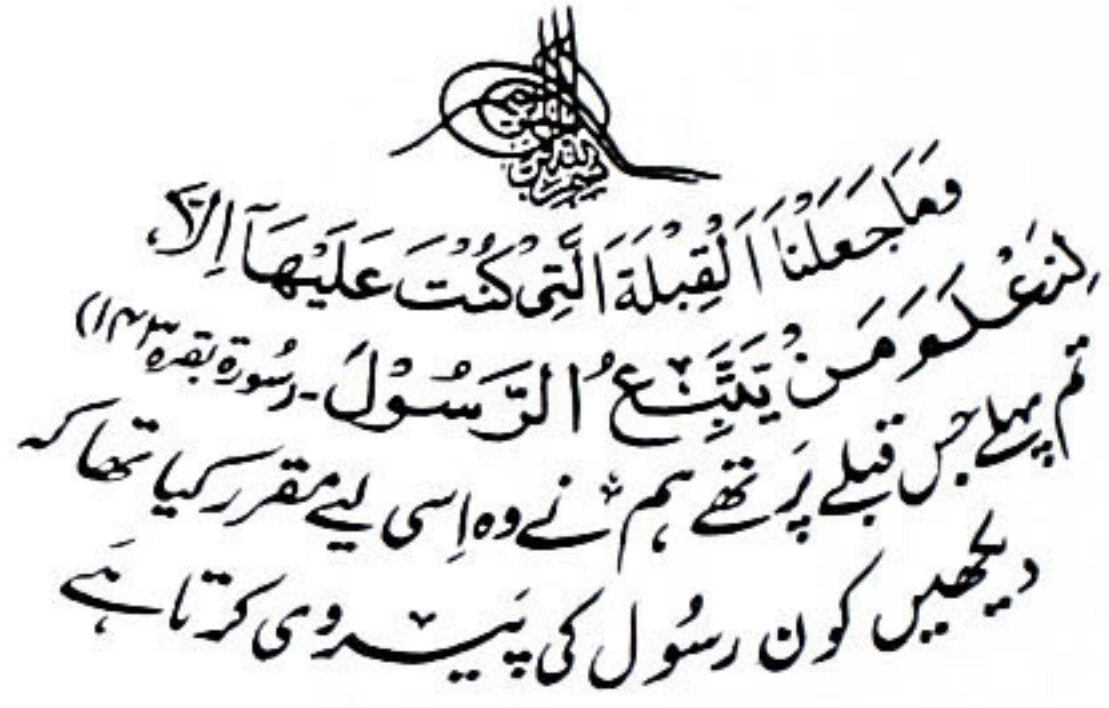 وَمَا جَعَلْنَا الْقِبْلَةَ الَّتِیْ كُنْتَ عَلَيْهَآ اِلَّا
لِنَعْلَمَ مَنْ يَّتَّبِعُ الرَّسُوْلَ - (سُورۃ بقرہ ۱۴۳)
تم پہلے جس قبلے پَر تھے ہم نے وہ اِسی لیے مقرر کیا تھا کہ
دیکھیں کون رسُول کی پَیروی کرتا ہَے